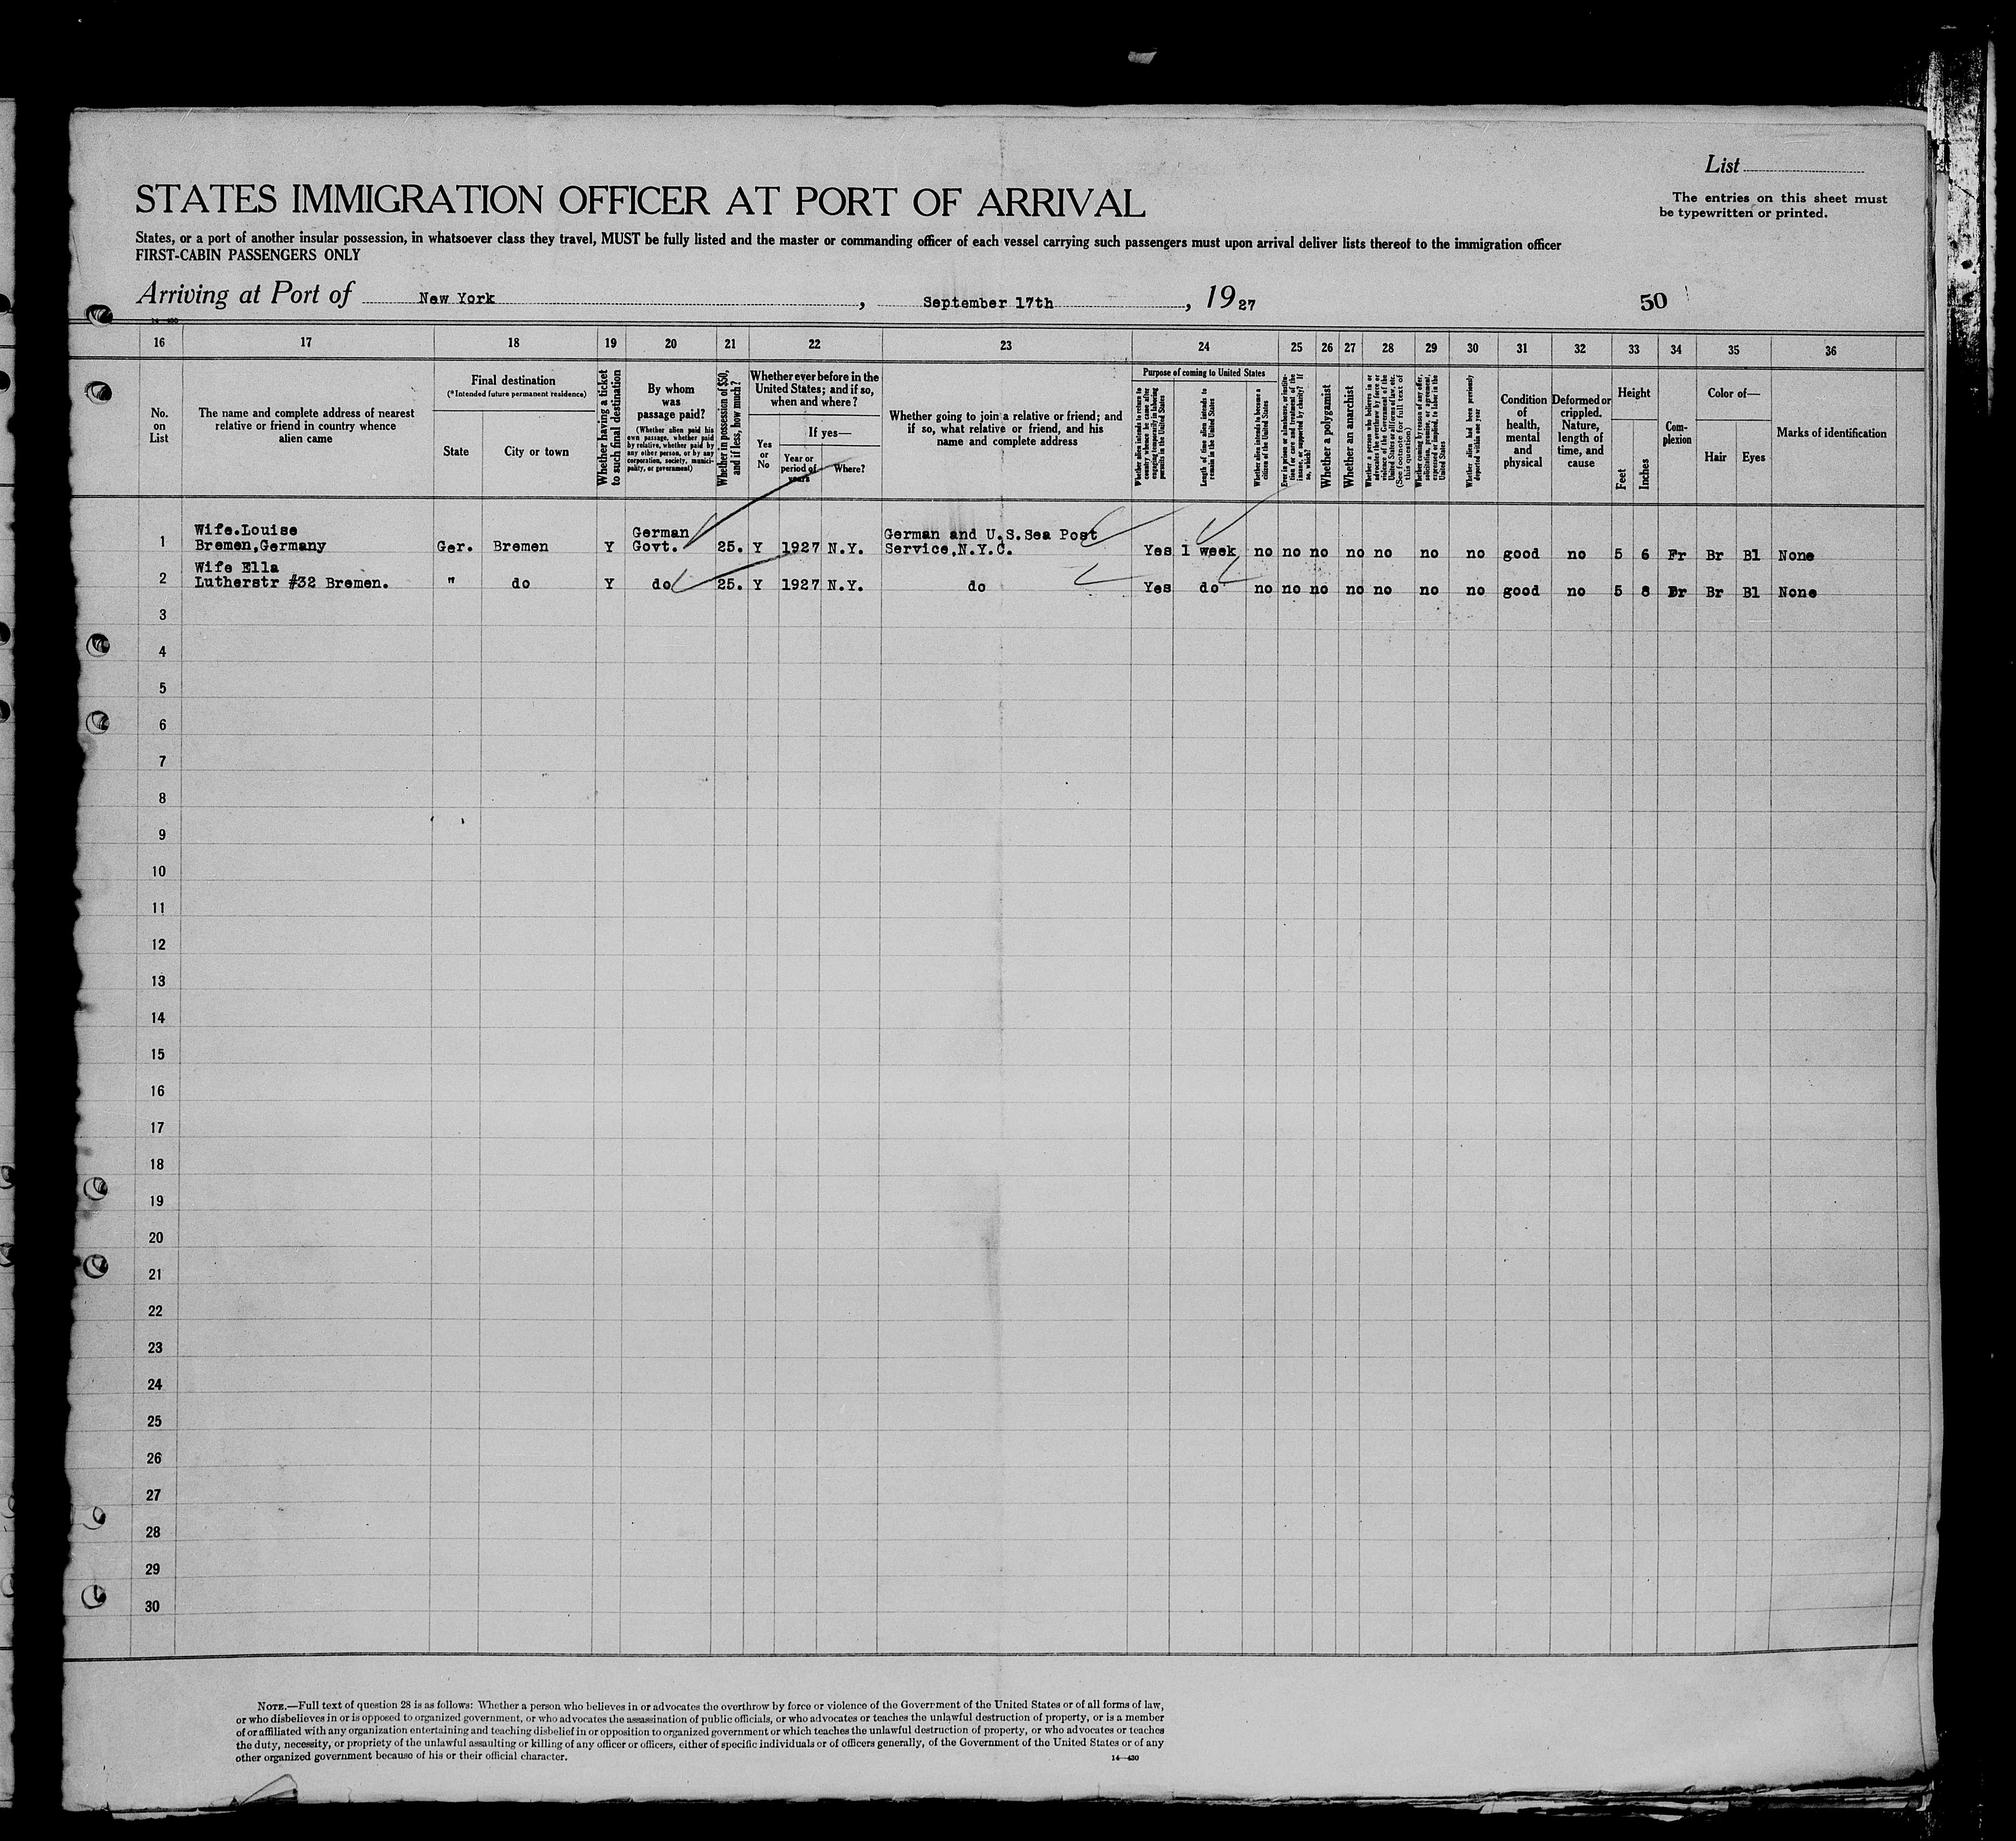 List
The entries on this sheet must
be typewritten or printed.
STATES IMMIGRATION OFFICER AT PORT OF ARRIVAL
States, or a port of another insular possession, in whatsoever class they travel, MUST be fully listed and the master or commanding officer of each vessel carrying such passengers must upon arrival deliver lists thereof to the immigration officer
FIRST-CABIN PASSENGERS ONLY
Arriving at Port of New York, September 17th, 1927
50
14-430
16 17 18 19 20 21 22 23 24 25 26 27 28 29 30 31 32 33 34 35 36
No.
on
List
The name and complete address of nearest
relative or friend in country whence
alien came
Final destination
(*Intended future permanent residence)
State
City or town
Whether having a ticket
to such final destination
By whom
was
passage paid?
(Whether alien paid his
own passage, whether paid
by relative, whether paid by
any other person, or by any
corporation, society, munici-
pality, or government)
Whether in possession of $50,
and if less, how much?
Whether ever before in the
United States; and if so,
when and where?
Yes
or
No
If yes—
Year or
period of
years
Where?
Whether going to join a relative or friend; and
if so, what relative or friend, and his
name and complete address
Purpose of coming to United States
Whether alien intends to return to
country whence he came after
engaging temporarily in laboring
pursuits in the United States
Length of time alien intends to
remain in the United States
Whether alien intends to become a
citizen of the United States
Ever in prison or almshouse, or institu-
tion for care and treatment of the
insane, or supported by charity? If
so, which?
Whether a polygamist
Whether an anarchist
Whether a person who believes in or
advocates the overthrow by force or
violence of the Government of the
United States or all forms of law, etc.
(See footnote for full text of
this question)
Whether coming by reason of any offer,
solicitation, promise, or agreement,
expressed or implied, to labor in the
United States
Whether alien had been previously
deported within one year
Condition
of
health,
mental
and
physical
Deformed or
crippled.
Nature,
length of
time, and
cause
Height
Feet
Inches
Com-
plexion
Color of—
Hair
Eyes
Marks of identification
Wife.Louise
1 Bremen,Germany Ger. Bremen Y German Govt. 25. Y 1927 N.Y. German and U.S.Sea Post Service,N.Y.C. Yes 1 week no no no no no no no good no 5 6 Fr Br Bl None
Wife Ella
2 Lutherstr #32 Bremen. " do Y do 25. Y 1927 N.Y. do Yes do no no no no no no no good no 5 8 Br Bl None
3
4
5
6
7
8
9
10
11
12
13
14
15
16
17
18
19
20
21
22
23
24
25
26
27
28
29
30
NOTE.—Full text of question 28 is as follows: Whether a person who believes in or advocates the overthrow by force or violence of the Government of the United States or of all forms of law,
or who disbelieves in or is opposed to organized government, or who advocates the assassination of public officials, or who advocates or teaches the unlawful destruction of property, or is a member
of or affiliated with any organization entertaining and teaching disbelief in or opposition to organized government or which teaches the unlawful destruction of property, or who advocates or teaches
the duty, necessity, or propriety of the unlawful assaulting or killing of any officer or officers, either of specific individuals or of officers generally, of the Government of the United States or of any
other organized government because of his or their official character.
14—430